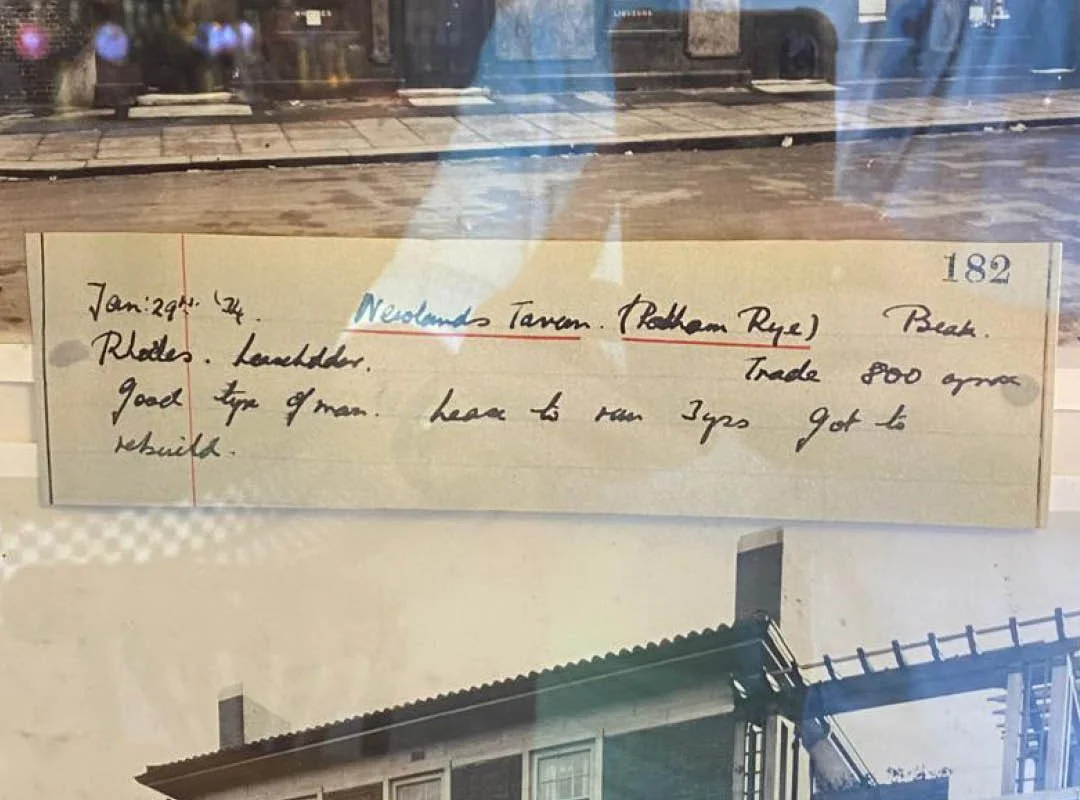 LIQUEURS
182
Jan: 29th. '34. Newlands Tavern. (Peckham Rye) Beak.
Rhodes. Leaseholder. Trade 800 aprox
Good type of man. Lease to run 3yrs Got to
rebuild.